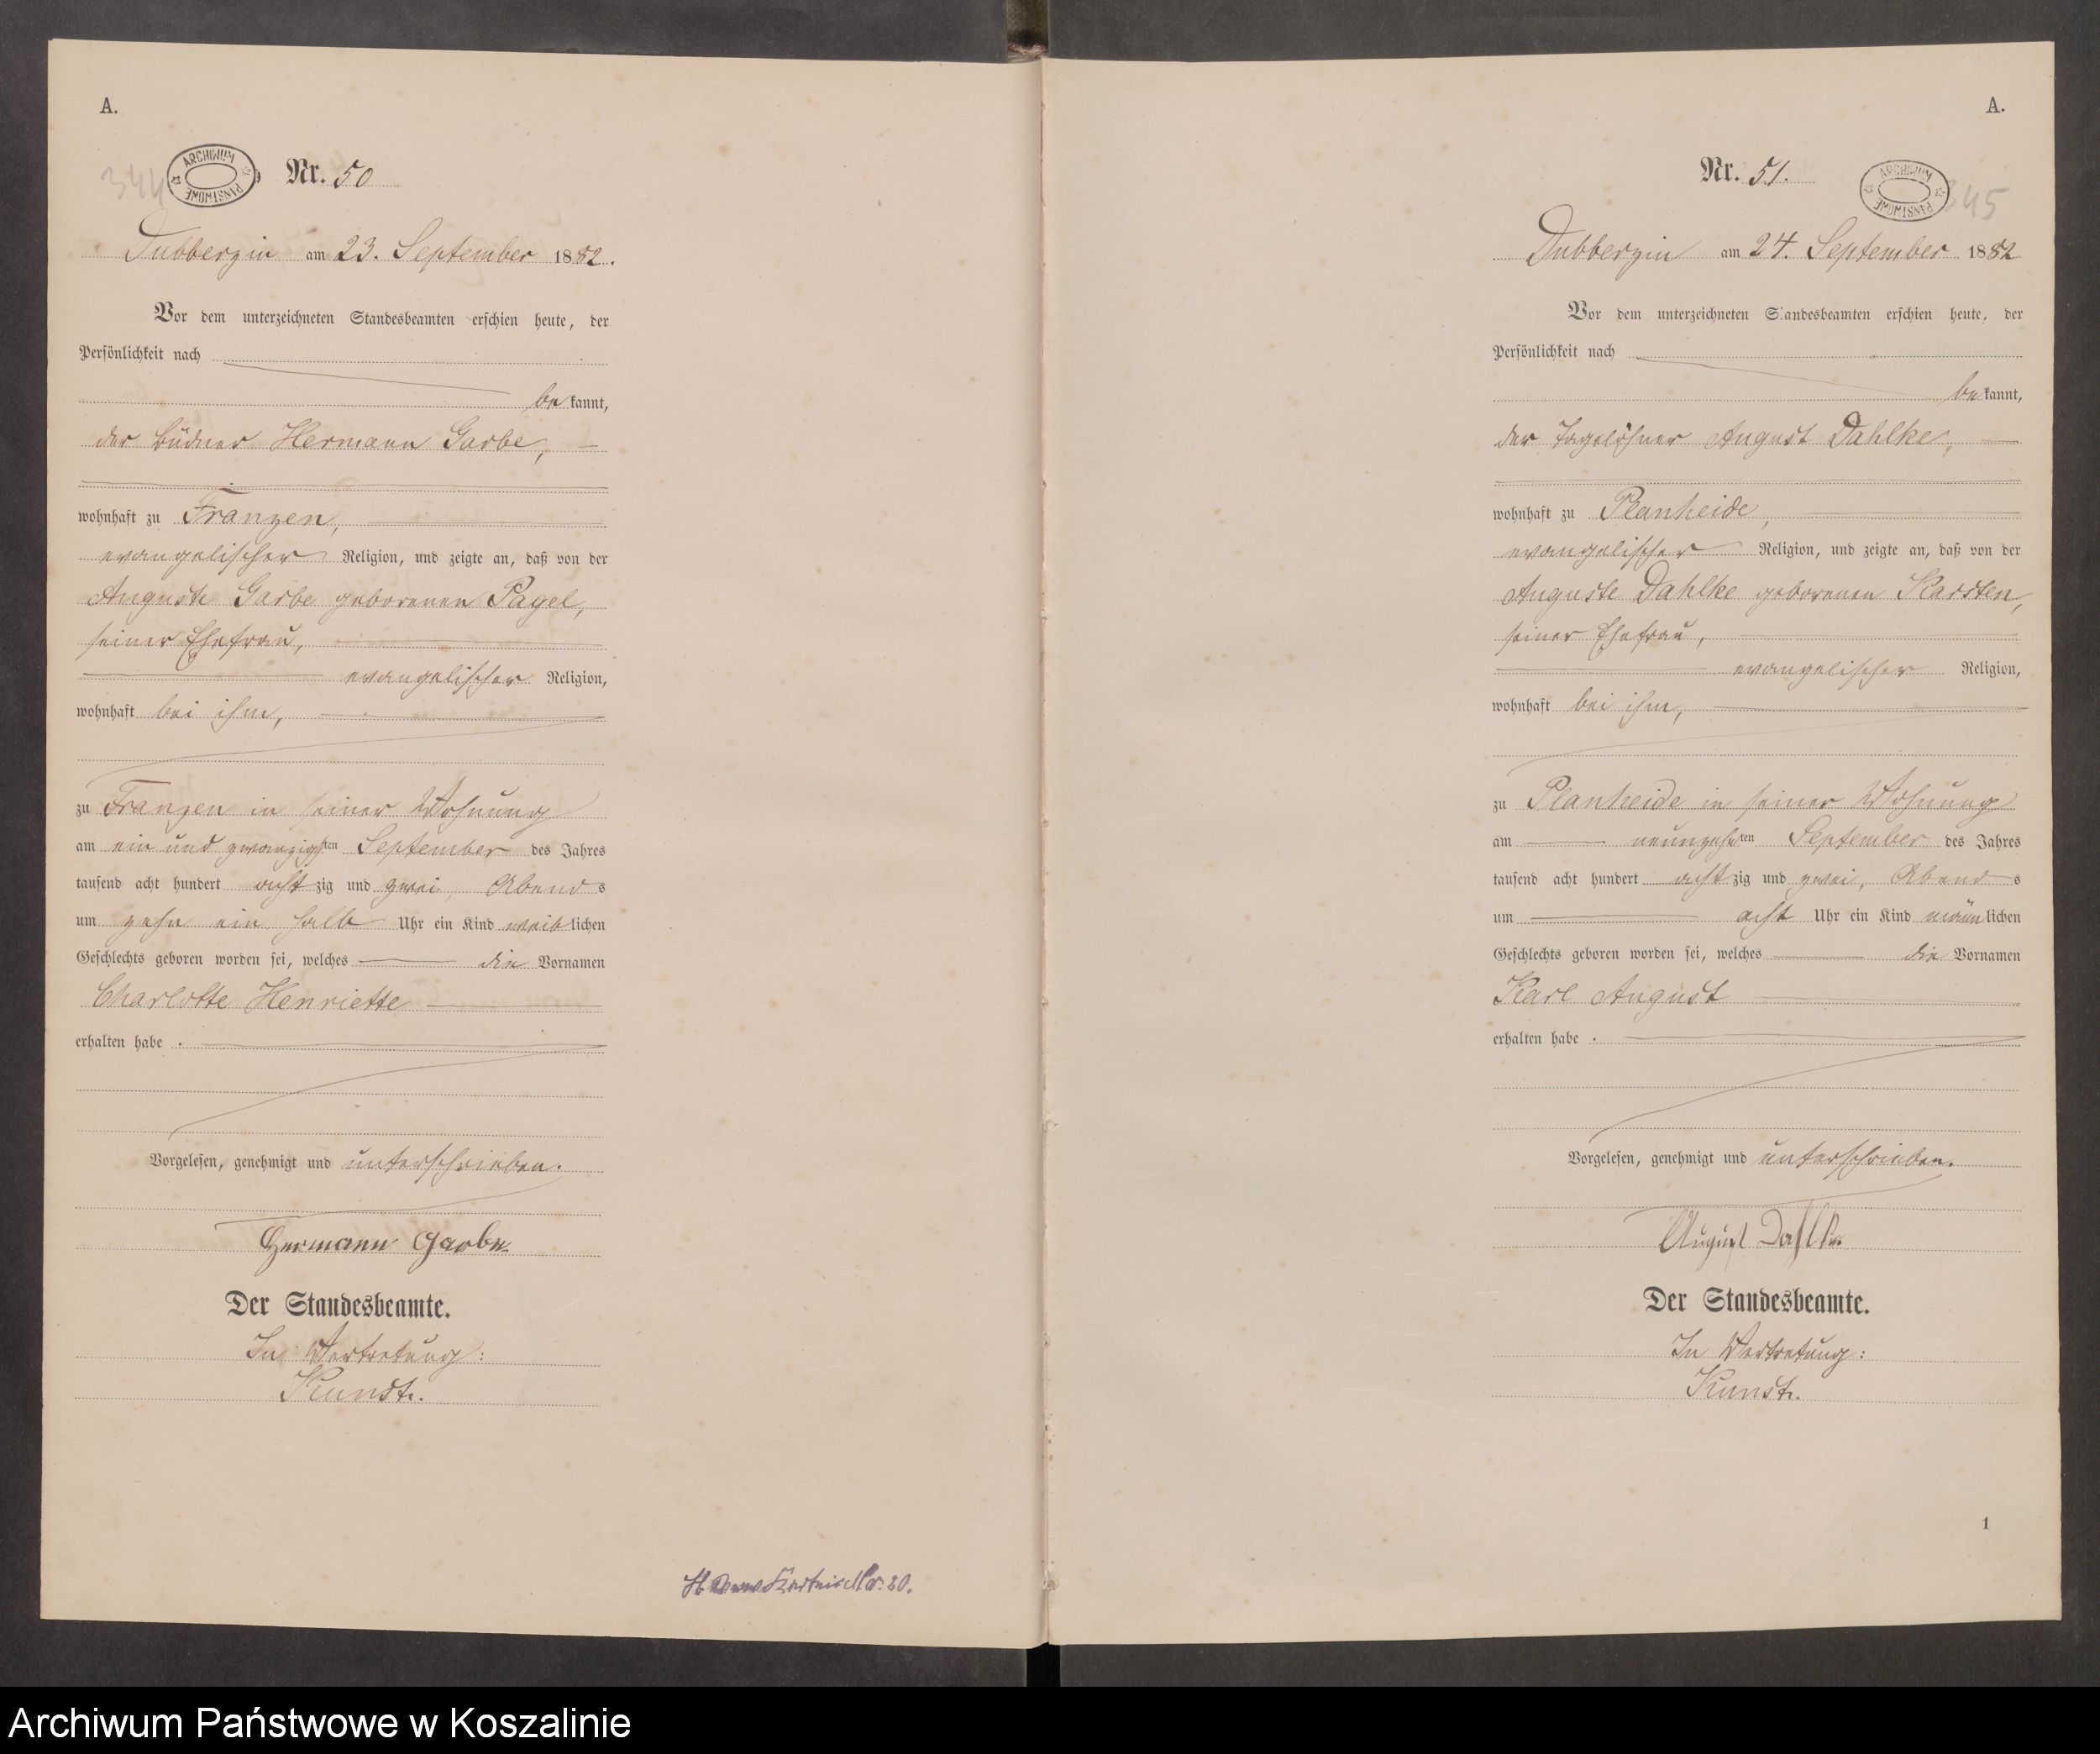 A.
344
ARCHIWUM PAŃSTWOWE
Nr. 50
Dubberzin am 23. September 1882.
Vor dem unterzeichneten Standesbeamten erschien heute, der
Persönlichkeit nach
bekannt,
der Büdner Hermann Garbe,
wohnhaft zu Franzen,
evangelischer Religion, und zeigte an, daß von der
Auguste Garbe geborenen Pagel,
seiner Ehefrau,
evangelischer Religion,
wohnhaft bei ihm,
zu Franzen in seiner Wohnung
am ein und zwanzigsten September des Jahres
tausend acht hundert achtzig und zwei, Abends
um zehn ein halb Uhr ein Kind weiblichen
Geschlechts geboren worden sei, welches die Vornamen
Charlotte Henriette
erhalten habe.
Vorgelesen, genehmigt und unterschrieben.
Hermann Garbe
Der Standesbeamte.
In Vertretung:
Kunde.
Nr. 20.
A.
Nr. 51.
ARCHIWUM PAŃSTWOWE
345
Dubberzin am 24. September 1882
Vor dem unterzeichneten Standesbeamten erschien heute, der
Persönlichkeit nach
bekannt,
der Tagelöhner August Dahlke,
wohnhaft zu Planheide,
evangelischer Religion, und zeigte an, daß von der
Auguste Dahlke geborenen Karsten,
seiner Ehefrau,
evangelischer Religion,
wohnhaft bei ihm,
zu Planheide in seiner Wohnung
am neunzehnten September des Jahres
tausend acht hundert achtzig und zwei, Abends
um acht Uhr ein Kind männlichen
Geschlechts geboren worden sei, welches die Vornamen
Karl August
erhalten habe.
Vorgelesen, genehmigt und unterschrieben.
August Dahlke
Der Standesbeamte.
In Vertretung:
1
Archiwum Państwowe w Koszalinie